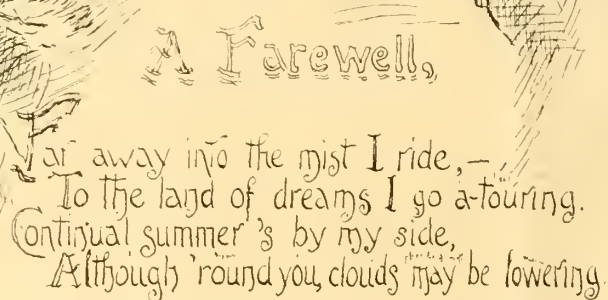 A Farewell,
Far away into the mist I ride,—
To the land of dreams I go a-touring.
Continual summer 's by my side,
Although 'round you, clouds may be lowering